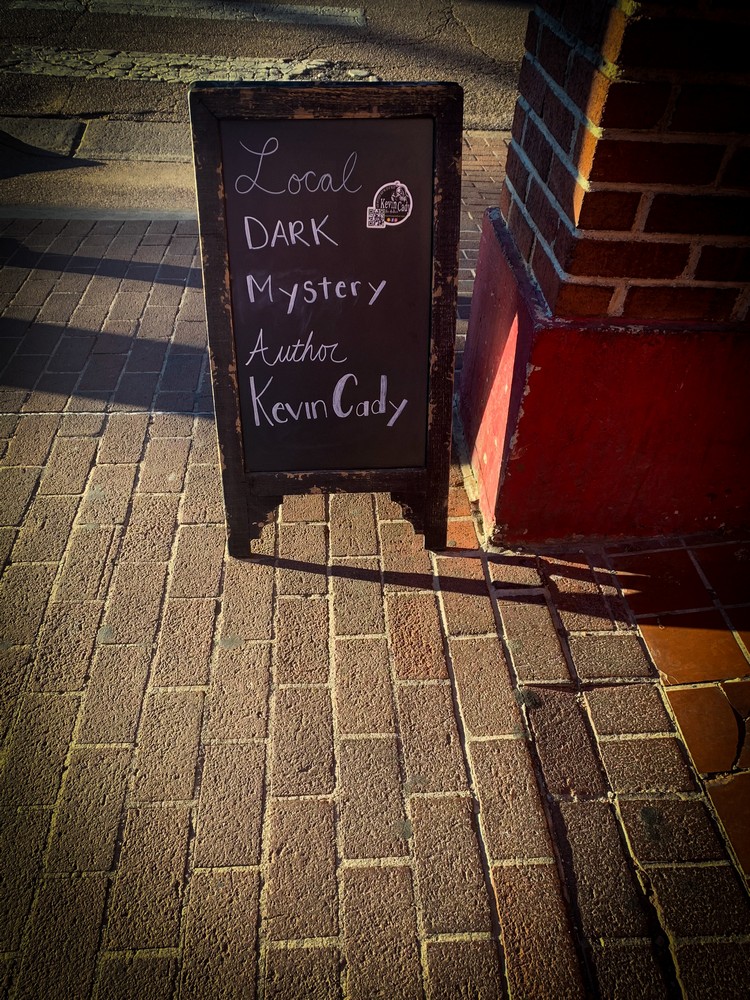 Local
DARK
Mystery
Author
Kevin Cady
Kevin Cady